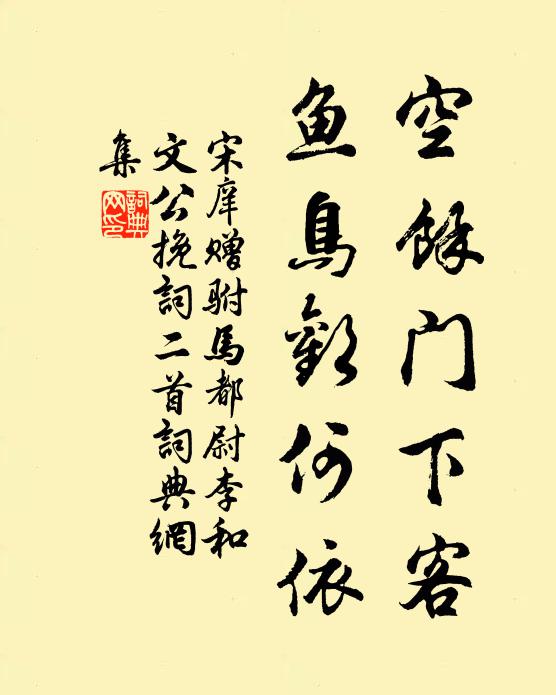 空餘门下客
鱼鳥歡何依
宋庠贈駙馬都尉李和
文公挽詞二首詞典網
集
詞典网印